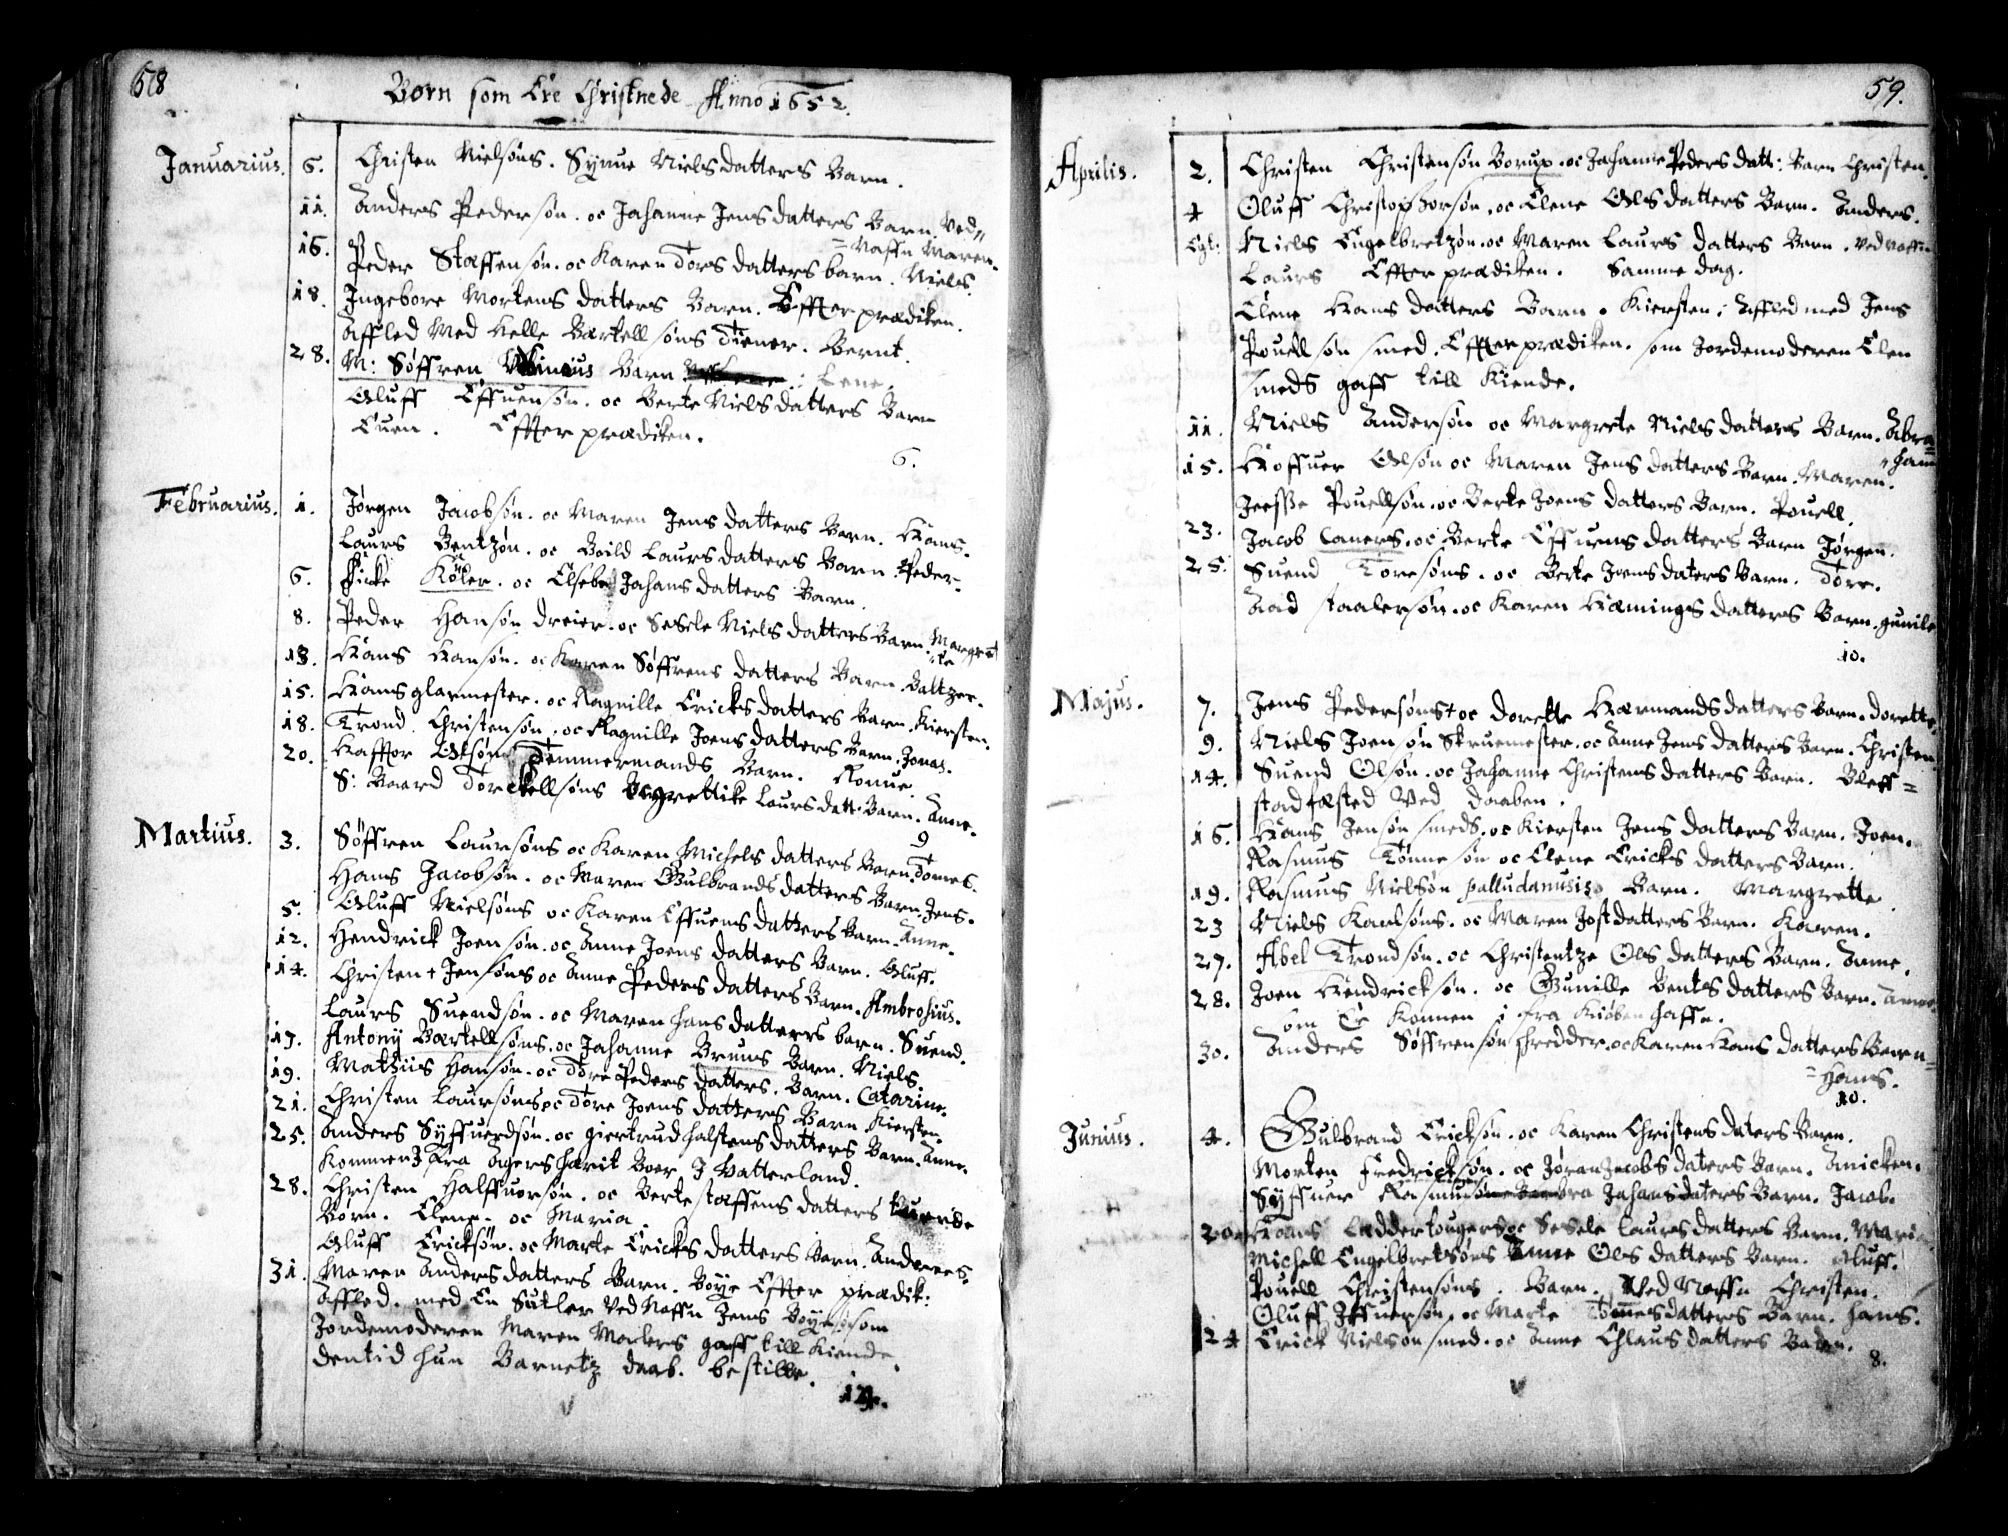 58
Børn som Ere Christnede Anno 1652.
Januarius. 6. Christen Nielsøns. Synue Nielsdatters Barn.
11. Anders Pedersøn. oc Johanne Jensdatters Barn. Ved
= Naffn Maren.
16. Peder Staffensøn. oc Karen Torsdatters barn. Niels.
18. Ingebore Mortensdatters Barn. Effter prædiken.
Affled Med Helle Bertellsøns Tiener. Bernt.
28. M: Søffren Barn : Lene.
Oluff Effuensøn. oc Berte Nielsdatters Barn
Euen. Effter prædiken.
6.
Februarius. 1. Jørgen Jacobsøn. oc Maren Jensdatters Barn. Hans.
Laurs Bentzøn. oc Boild Laursdatters Barn. Peder.
6. Køler. oc Elsebe Johansdatters Barn.
8. Peder Hansøn dreier. oc Sesele Nielsdatters Barn. Margret
te
13. Hans Hansøn. oc Karen Søffrensdatters Barn. Baltzer.
15. Hans glarmester. oc Ragnille Ericksdatters Barn. Kiersten.
18. Trond Christensøn. oc Ragnille Joensdatters Barn. Jonas.
20. Haffor Tømmermands Barn. Ronue.
S: Baard Torckellsøns Laursdatt: Barn. Anne.
9
Martius. 3. Søffren Laursøns oc Karen Michelsdatters Barn. Tomes.
Hans Jacobsøn. oc Maren Gulbrandsdatters Barn. Jens.
5. Oluff Nielsøns oc Karen Effuensdatters Barn. Anne.
12. Hendrick Joensøn. oc Anne Joensdatters Barn. Oluff.
14. Christen + Jensøns oc Anne Pedersdatters Barn. Ambrosius.
Laurs Suendsøn. oc Maren Hansdatters barn. Suend.
17. Antony Bertellsøns. oc Johanne Bruns Barn. Niels.
19. Mathiis Hansøn. oc Tore Pedersdatters. Barn. Catarine.
21. Christen Laursøns oc Tore Joensdatters Barn Kiersten.
25. Anders Syffuerdsøn. oc giertrud Halstensdatters Barn. Anne.
Kommen J fra Agershærit Boer J Vatterland.
28. Christen Halffuorsøn. oc Berte Staffensdatters
Børn. Elene. oc Maria.
Oluff Ericksøn. oc Marte Ericksdatters Barn. Andrees.
31. Maren Andersdatters Barn. Boye Effter prædik:
Affled. med En Sutler Ved Naffn Jens Boyes. som
Jordemoderen Maren Morters gaff till kiende.
dentid hun Barnetz daab. bestilte.
14.
59.
Aprilis. 2. Christen Christensøn Borup. oc Johanne Pedersdatt: Barn Christen.
4 Oluff Christophorsøn. oc Elene Olsdatters Barn. Anders.
Niels Engelbretzøn. oc Maren Laursdatters Barn. Ved naffn
Laurs Effter prædiken. Samme dag.
Elene Hansdatters Barn. Kiersten. Affled med Jens
Pouellsøn smed. Effter prædiken. som Jordemoderen Elen
smeds gaff till kiende.
11. Niels Andersøn oc Margrete Nielsdatters Barn. Abra
ham
15. Hoffuer Olsøn oc Maren Jensdatters Barn. Maren.
Jesse Pouellsøn. oc Berte Joensdatters Barn. Pouell.
23. Jacob Caners. oc Berte Effuensdatters Barn Jørgen.
25. Suend Toresøns. oc Berte Joensdaters Barn. Tore.
Aad staalersøn. oc Karen Hemingsdatters Barn. gunile
10.
Majus. 7. Jens Pedersøns + oc dorette Hermandsdatters Barn. dorette.
9. Niels Joensøn Skruemester. oc Anne Jensdatters Barn. Christen.
14. Suend Olsøn. oc Johanne Christensdatters Barn. Bleff =
stadfæsted Ved daaben.
16. Hans Jensøn smeds. oc Kiersten Jensdatters Barn. Joen.
Rasmus Tønnesøn oc Elene Ericksdatters Barn.
19. Rasmus Nielsøn palludanusis Barn. Margrette.
23 Niels Karlsøns. oc Maren Jostdatters Barn. Karen.
27. Abel Trondsøn. oc Christentze Olsdatters Barn. Anne.
28. Joen Hendricksøn. oc Gunille Bentsdatters Barn. Anne.
som Er kommen i fra Kiøbenhaffn.
30. Anders Søffrensøn skredder. oc Karen Hansdatters Barn =
= Hans.
10.
Junius. 4. Gulbrand Ericksøn. oc Karen Christensdaters Barn.
Morten Fredricksøn. oc Jøran Jacobsdaters Barn. Anicken.
Syffuer Johansdaters Barn. Jacob.
20. Hans oc Sesele Laursdatters Barn. Maria
Michell Engelbretsøns Anne Olsdatters Barn. Oluff.
Pouell Christensøns. Barn. Ved Naffn Christen.
Oluff Iffuersøn. oc Marte Tomesdatters Barn. Hans.
24 Erick Nielsøn smed. oc Anne Chlausdatters Barn.
8.